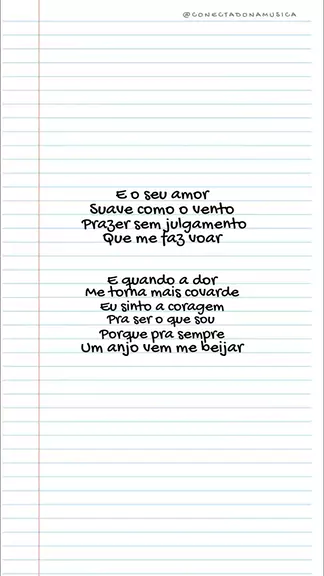 @CONECTADONAMUSICA
E o seu amor
Suave como o vento
Prazer sem julgamento
Que me faz voar
E quando a dor
Me torna mais covarde
Eu sinto a coragem
Pra ser o que sou
Porque pra sempre
Um anjo vem me beijar